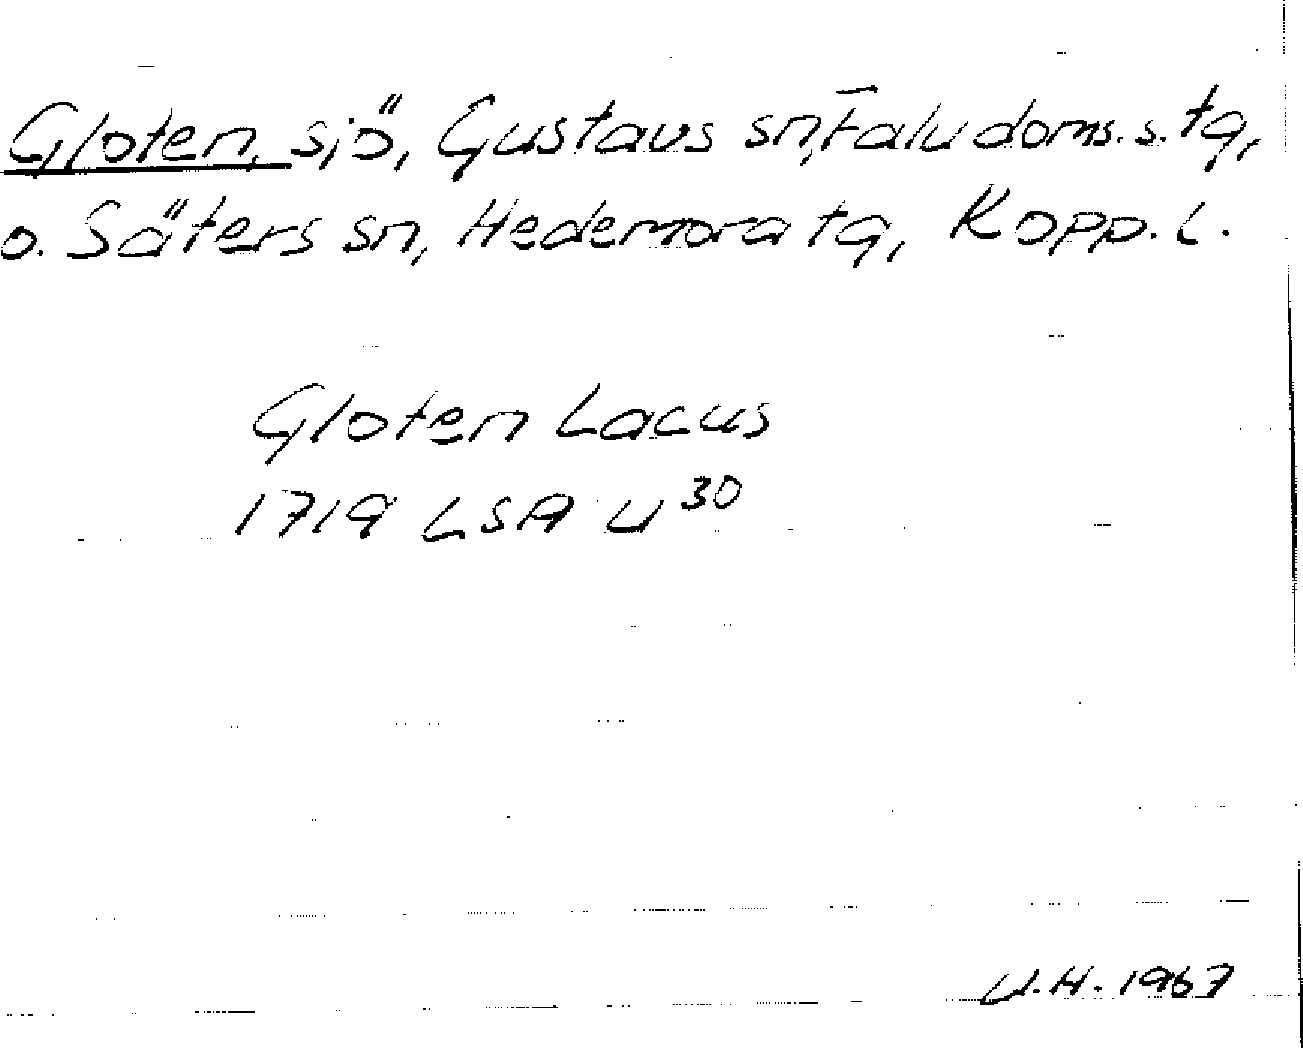 Gloten, sjö, Gustavs sn, Falu doms. s. tg,
o. Säters sn, Hedemora tg, Kopp. L.
Gloten Lacus
1719 LSA U 30
U.H. 1967